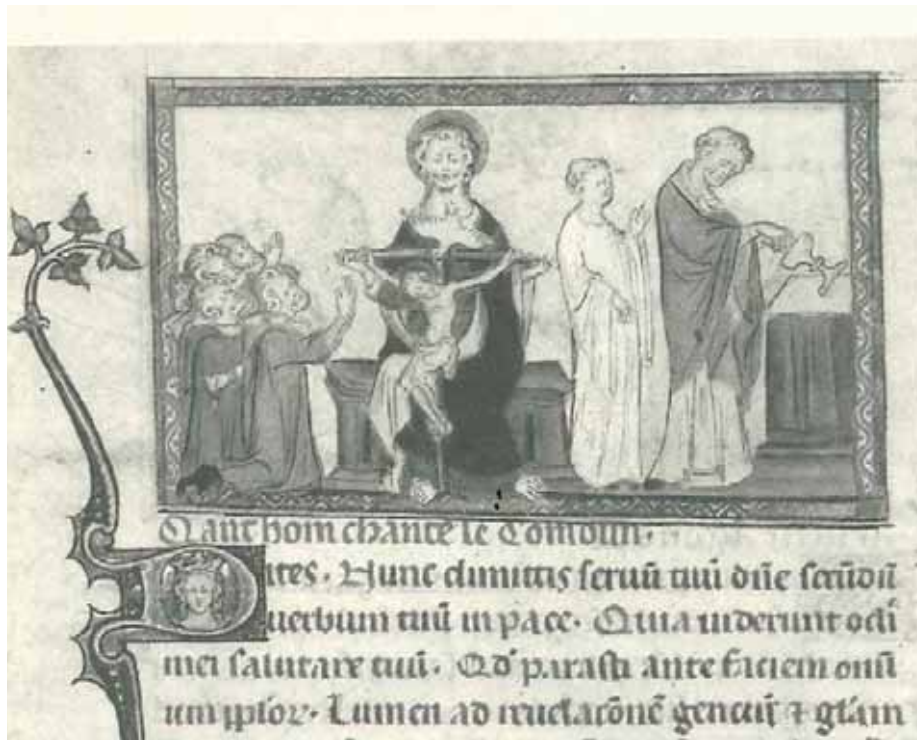 Qant hom chante le Comoun.
Dites. Nunc dimittis seruū tuū dn̄e scd̄m
uerbum tuū in pace. Quia uiderunt oclī
mei salutare tuū. Qd̄ parasti ante faciem om̄ī
um pp̄lor. Lumen ad reuelacōnē genciū ⁊ glām